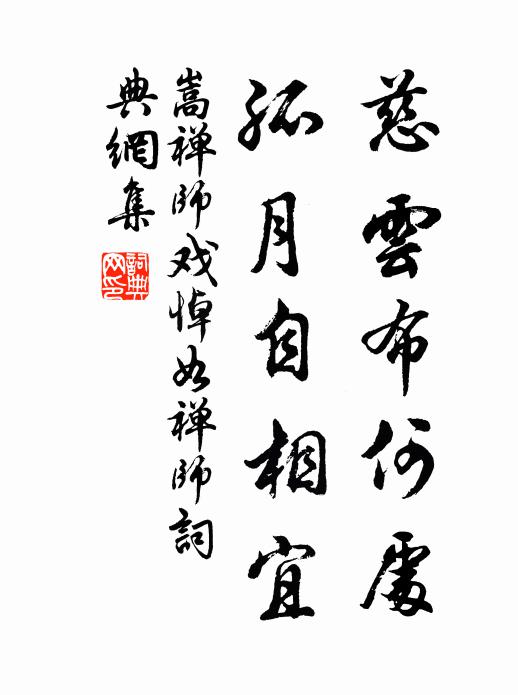 慈雲布何處
孤月自相宜
嵩禅師戏悼如禅師詞
典網集
詞典网印